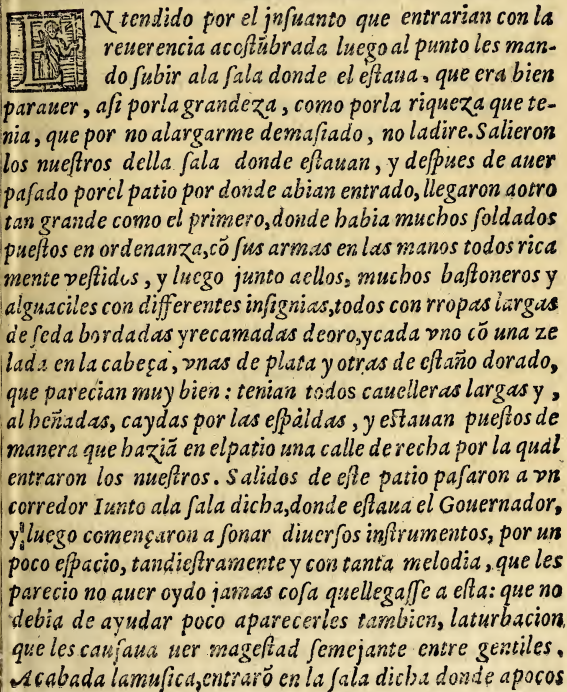 EN tendido por el jnſuanto que entrarian con la
reuerencia acoſtũbrada luego al punto les man-
do ſubir ala ſala donde el eſtaua, que era bien
parauer, aſi porla grandeza, como porla riqueza que te-
nia, que por no alargarme demaſiado, no ladire. Salieron
los nueſtros della ſala donde eſtauan, y deſpues de auer
paſado porel patio por donde abian entrado, llegaron aotro
tan grande como el primero, donde habia muchos ſoldados
pueſtos en ordenanza, cõ ſus armas en las manos todos rica
mente veſtidos, y luego junto aellos, muchos baſtoneros y
alguaciles con differentes inſignias, todos con rropas largas
de ſeda bordadas yrecamadas deoro, ycada vno cõ una ze
lada en la cabeça, vnas de plata y otras de eſtaño dorado,
que parecian muy bien: tenian todos cauelleras largas y ,
al heñadas, caydas por las eſpàldas, y eſtauan pueſtos de
manera que haziã en elpatio una calle derecha por la qual
entraron los nueſtros. Salidos de eſte patio paſaron a vn
corredor Iunto ala ſala dicha, donde eſtaua el Gouernador,
y luego començaron a ſonar diuerſos inſtrumentos, por un
poco eſpacio, tandieſtramente y con tanta melodia, que les
parecio no auer oydo jamas coſa quellegaſſe a eſta: que no
debia de ayudar poco aparecerles tambien, laturbacion,
que les cauſaua uer mageſtad ſemejante entre gentiles.
Acabada lamuſica, entrarõ en la ſala dicha donde apocos